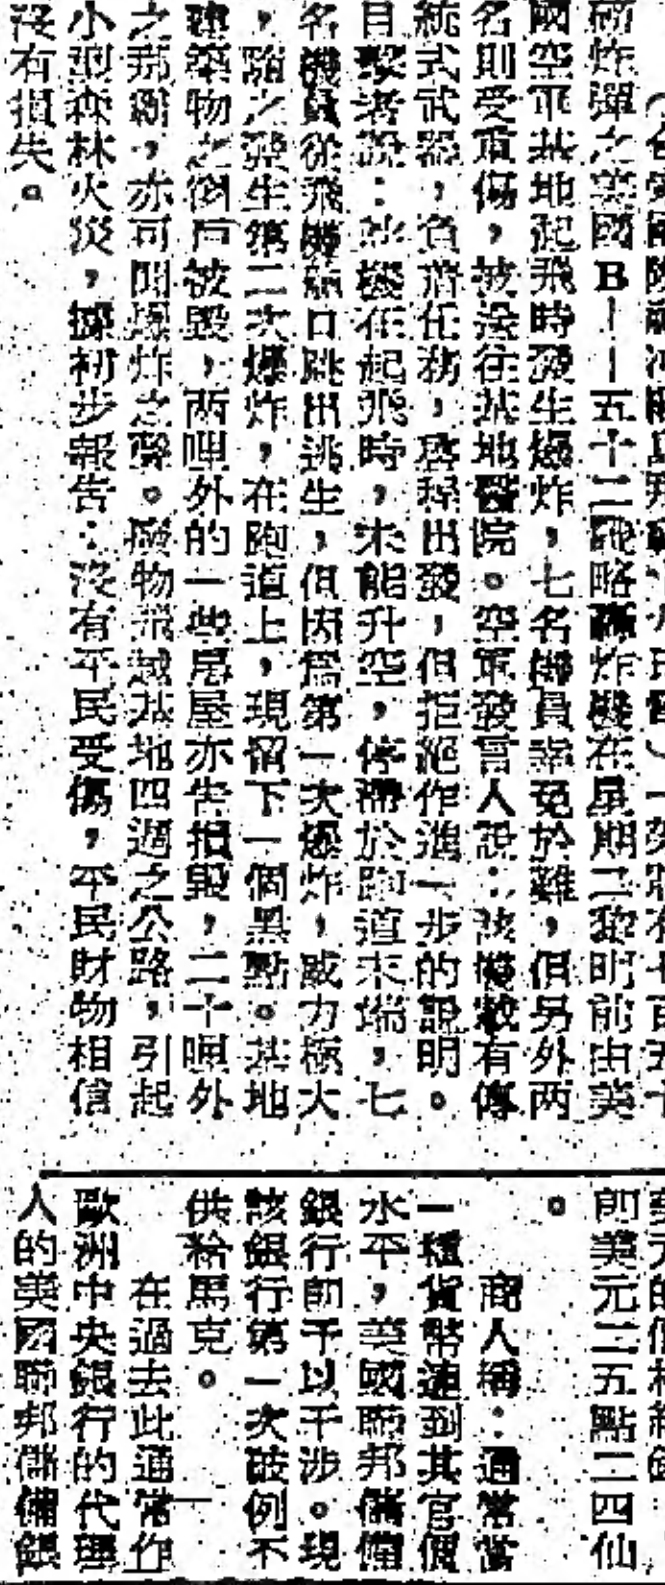 磅炸彈之美國B——五十二戰略轟炸機在星期二黎明前由美
國空軍基地起飛時發生爆炸，七名機員幸免於難，但另外两
名則受重傷，被送往基地醫院。空軍發言人說：該機載有傳
統式武器，負着任務，啓程出發，但拒絕作進一步的說明。
目擊者說：此機在起飛時，未能升空，停滯於跑道末端，七
名機員從飛機艙口跳出逃生，但因爲第一次爆炸，威力極大
，隨之發生第二次爆炸，在跑道上，現留下一個黑點。基地
建築物之窗戶被毀，两哩外的一些房屋亦告損毀，二十哩外
之那覇，亦可聞爆炸之聲。礙物飛越基地四週之公路，引起
小型森林火災，據初步報告：沒有平民受傷，平民財物相信
沒有損失。
即美元二五點二四仙
。
商人稱：通常當
一種貨幣達到其官價
水平，美國聯邦儲備
銀行即予以干涉。現
該銀行第一次破例不
供給馬克。
在過去此通常作
歐洲中央銀行的代理
人的美國聯邦儲備銀